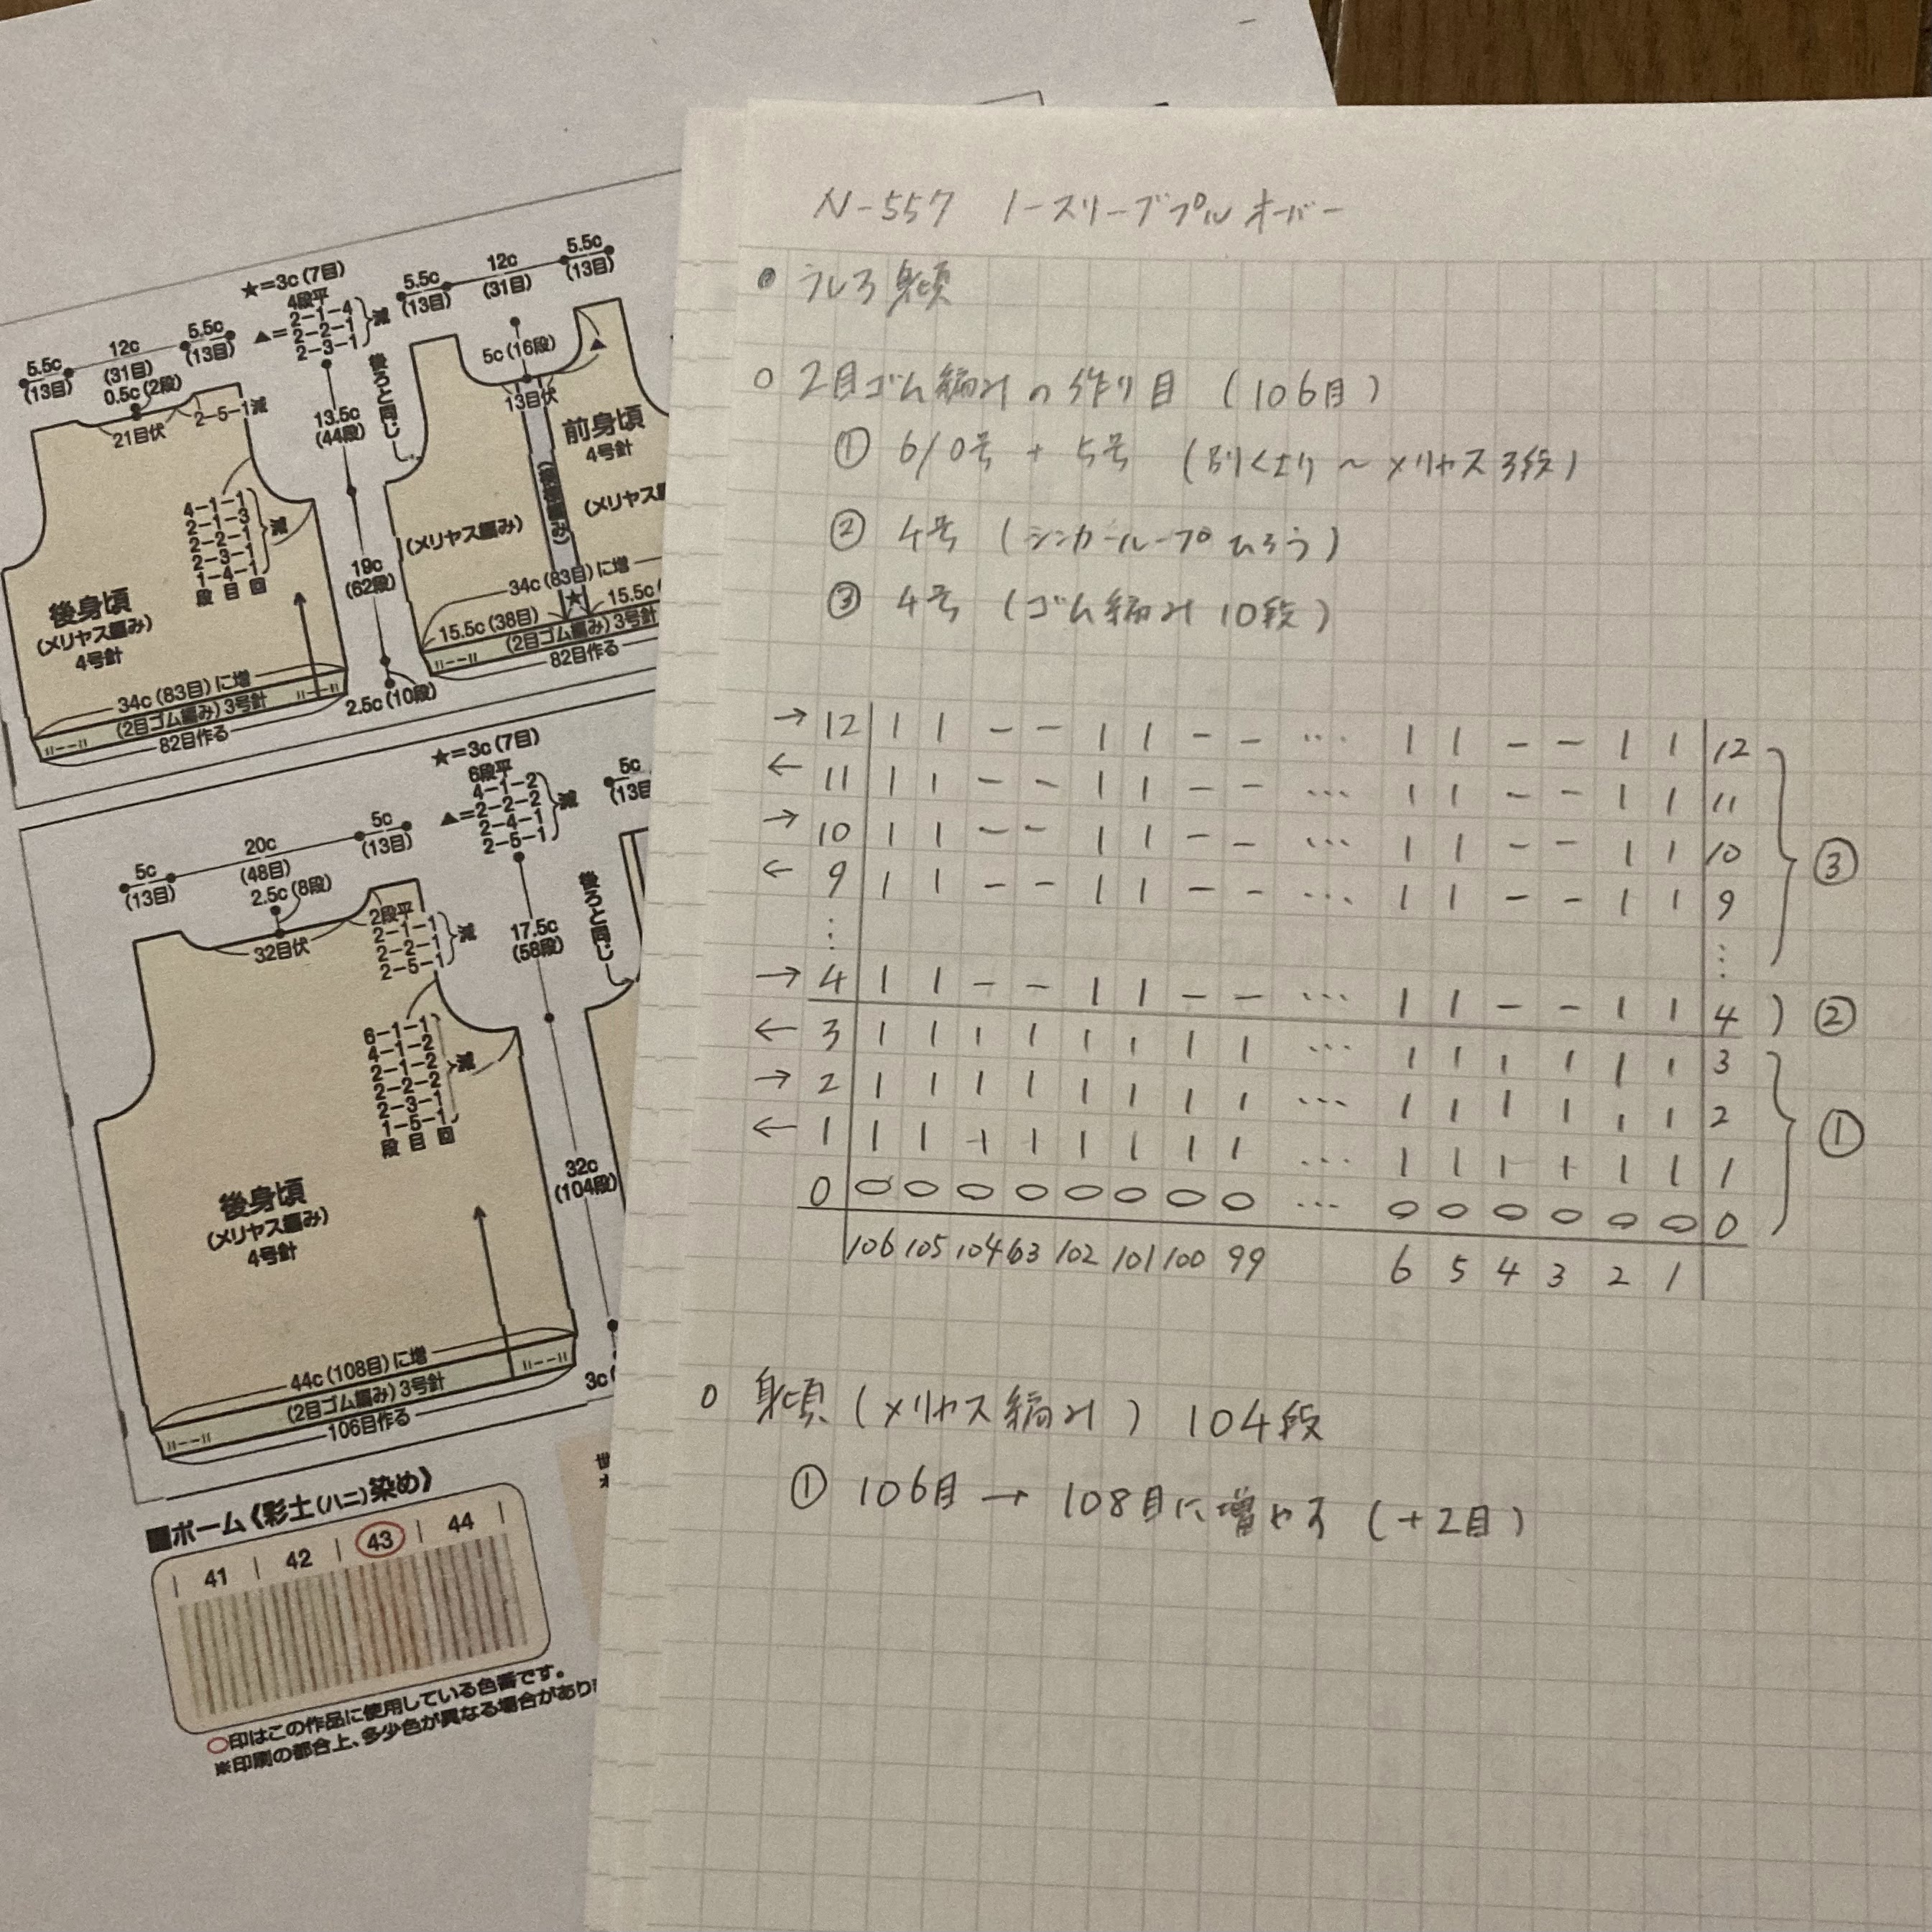 ★=3c(7目)
4段平
2-1-4
2-2-1
2-3-1
▲=
減
5.5c
(13目)
12c
(31目)
5.5c
(13目)
0.5c(2段)
21目伏
2-5-1減
4-1-1
2-1-3
2-2-1
2-3-1
1-4-1
段目回
減
後身頃
(メリヤス編み)
4号針
34c(83目)に増
(2目ゴム編み)3号針
82目作る
13.5c
(44段)
19c
(62段)
2.5c(10段)
後ろと同じ
5.5c
(13目)
12c
(31目)
5.5c
(13目)
5c(16段)
▲
13目伏
前身頃
4号針
(メリヤス編み)
(メリヤス
34c(83目)に増
15.5c(38目)
★
15.5c(
(2目ゴム編み)3号針
82目作る
★=3c(7目)
6段平
4-1-2
2-2-2
2-4-1
2-5-1
▲=
減
5c
(13目)
20c
(48目)
5c
(13目)
2.5c(8段)
32目伏
2段平
2-1-1
2-2-1
2-5-1
減
6-1-1
4-1-2
2-1-2
2-2-2
2-3-1
1-5-1
段目回
減
後身頃
(メリヤス編み)
4号針
44c(108目)に増
(2目ゴム編み)3号針
106目作る
17.5c
(58段)
32c
(104段)
3c(
後ろと同じ
5c
(13目
■ポーム《彩土(ハニ)染め》
41 | 42 | 43 | 44
○印はこの作品に使用している色番です。
※印刷の都合上、多少色が異なる場合があり
N-557 ノースリーブプルオーバー
● うしろ身頃
○ 2目ゴム編みの作り目 (106目)
① 6/0号 + 5号 (別くさり~メリヤス3段)
② 4号 (シンカーループひろう)
③ 4号 (ゴム編み 10段)
→ 12 | | - - | | - - … | | - - | | 12
← 11 | | - - | | - - … | | - - | | 11
→ 10 | | - - | | - - … | | - - | | 10
← 9 | | - - | | - - … | | - - | | 9
③
⋮ ⋮
→ 4 | | - - | | - - … | | - - | | 4 ) ②
← 3 | | | | | | | | … | | | | | | 3
→ 2 | | | | | | | | … | | | | | | 2
← 1 | | | | | | | | … | | | | | | 1
①
0 ○ ○ ○ ○ ○ ○ ○ ○ … ○ ○ ○ ○ ○ ○ 0
106 105 104 103 102 101 100 99 6 5 4 3 2 1
○ 身頃 (メリヤス編み) 104段
① 106目 → 108目に増やす (+2目)